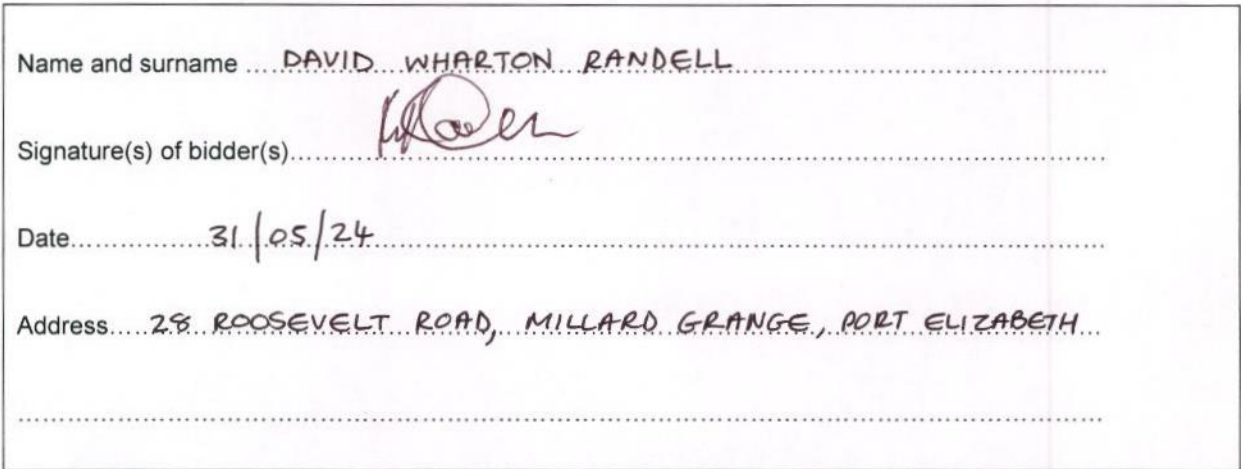 Name and surname ....DAVID WHARTON RANDELL....
Signature(s) of bidder(s)....
Date....31/05/24....
Address....28 ROOSEVELT ROAD, MILLARD GRANGE, PORT ELIZABETH....